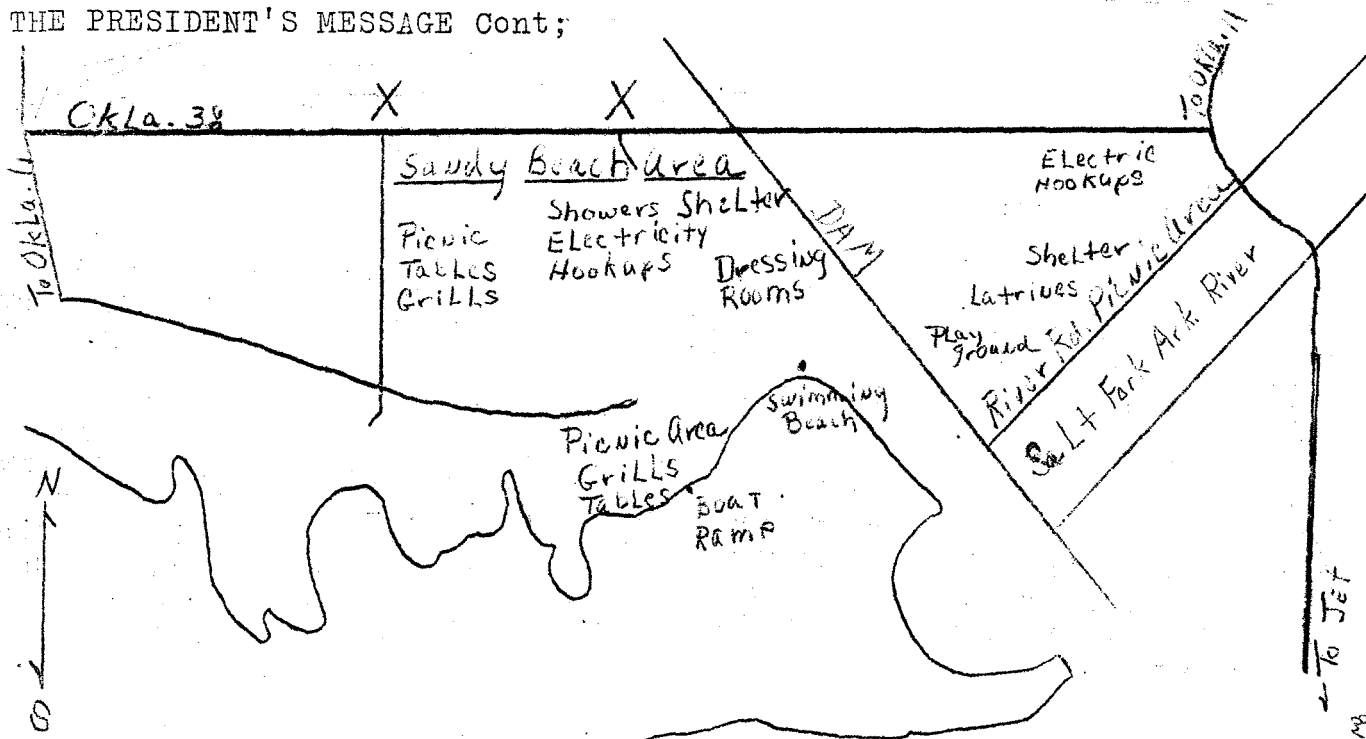 THE PRESIDENT'S MESSAGE Cont;
X
X
To Okla. 11
Okla. 38
To Okla. 11
Sandy Beach Area
Picnic
Tables
Grills
Showers Shelter
Electricity
Hookups
Dressing
Rooms
DAM
Electric
Hookups
Shelter
Latrines
Play
ground
River Rd. Picnic Area
Salt Fork Ark. River
Swimming
Beach
Picnic Area
Grills
Tables
Boat
Ramp
N
S
To Jet